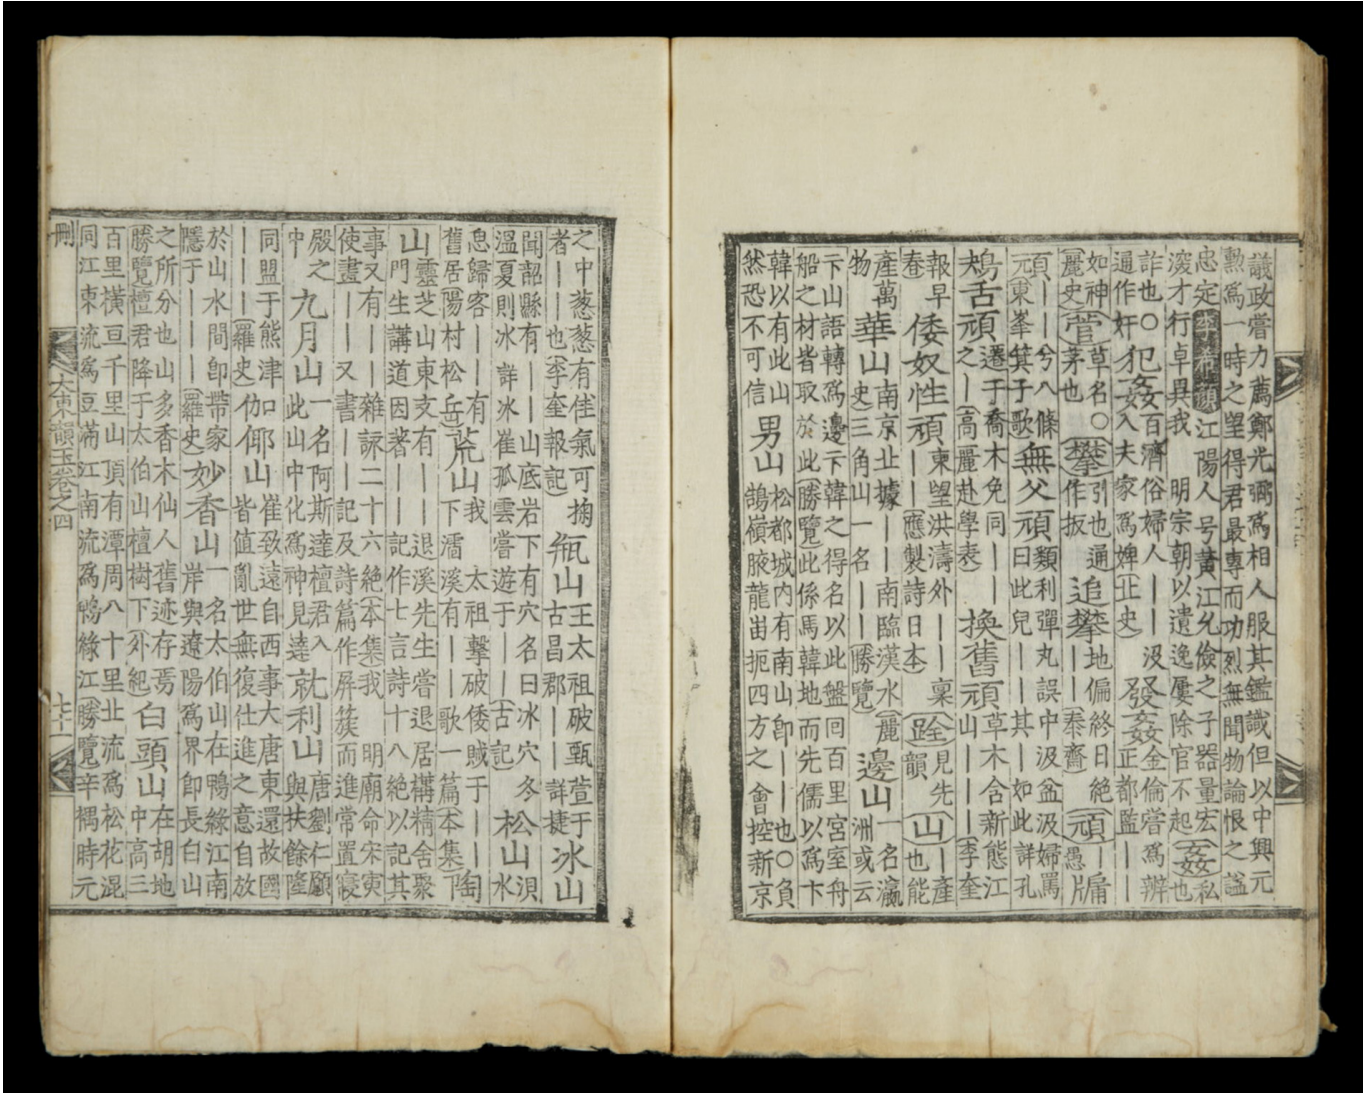 議政嘗力薦鄭光弼爲相人服其鑑識但以中興元
勳爲一時之望得君最專而功烈無聞物論恨之諡
忠定 李希顔 江陽人号黃江允儉之子器量宏
深才行卓異我 明宗朝以遺逸屢除官不起 姦 私也
詐也○通作奸 犯姦 百濟俗婦人——沒入夫家爲婢(北史) 發姦 金倫嘗爲辨正都監——
如神(麗史) 菅 草名○茅也 攀 引也通作扳 追攀 地偏終日絶——(泰齋) 頑 —庸愚片
頑——兮八條元東峯箕子歌 無父頑 類利彈丸誤中汲盆汲婦罵曰此兒——其—如此詳孔
鴂舌頑 遷于喬木免同——之—(高麗赴學表) 換舊頑 草木含新態江山———(李奎
報早春 倭奴性頑 東望洪濤外——稟——(應製詩日本) 跧 見先韻 山 —産也能
産萬物 華山 南京北據——南臨漢水(麗史)三角山一名——(勝覽) 邊山 一名瀛洲或云
卞山語轉爲邊卞韓之得名以此盤回百里宮室舟
船之材皆取於此(勝覽)此係馬韓地而先儒以爲卞
韓以有此山然恐不可信 男山 松都城内有南山卽——也○負鵠嶺腋龍岫扼四方之會控新京
之中葱葱有佳氣可掬者——也(李奎報記) 瓶山 王太祖破甄萱于古昌郡——詳捷 冰山
聞韶縣有——山底岩下有穴名曰冰穴冬溫夏則冰 詳冰崔孤雲嘗遊于——(古記) 松山 浿水
息歸客——有舊居陽村松岳 荒山 我 太祖擊破倭賊于——下溪有——歌一篇(本集) 陶
山 靈芝山東支有——退溪先生嘗退居構精舍聚
門生講道因著——記作七言詩十八絶以記其
事又有——雜詠二十六絶(本集)我 明廟命宋寅
使畫——又書——記及詩篇作屏簇而進常置寢
殿之中 九月山 一名阿斯達檀君入此山中化爲神見達 就利山 唐劉仁願與扶餘隆
同盟于熊津口———(羅史) 伽倻山 崔致遠自西事大唐東還故國皆値亂世無復仕進之意自放
於山水間卽帶家隱于———(羅史) 妙香山 一名太伯山在鴨綠江南岸與遼陽爲界卽長白山
之所分也山多香木仙人舊迹存焉勝覽檀君降于太伯山檀樹下(外紀) 白頭山 在胡地中高三
百里橫亘千里山頂有潭周八十里北流爲松花混
同江東流爲豆滿江南流爲鴨綠江(勝覽辛禑時元
刪 大東韻玉卷之四